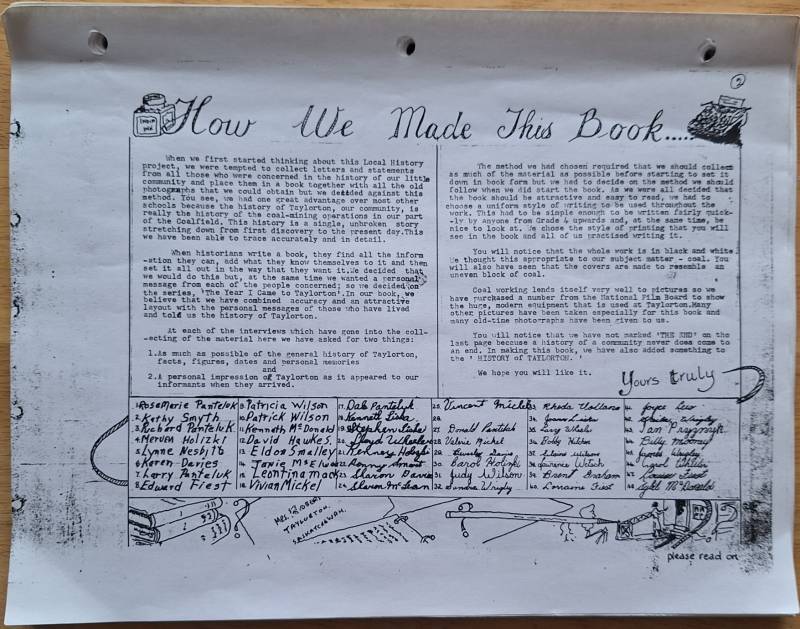 2
INDIA INK
How We Made This Book.....
When we first started thinking about this Local History
project, we were tempted to collect letters and statements
from all those who were concerned in the history of our little
community and place them in a book together with all the old
photographs that we could obtain but we decided against this
method. You see, we had one great advantage over most other
schools because the history of Taylorton, our community, is
really the history of the coal-mining operations in our part
of the Coalfield. This history is a single, unbroken story
stretching down from first discovery to the present day.This
we have been able to trace accurately and in detail.
When historians write a book, they find all the inform
-ation they can, add what they know themselves to it and then
set it all out in the way that they want it.We decided that
we would do this but, at the same time we wanted a personal
message from each of the people concerned; so we decided on
the series, 'The Year I Came to Taylorton'.In our book, we
believe that we have combined accuracy and an attractive
layout with the personal messages of those who have lived
and told us the history of Taylorton.
At each of the interviews which have gone into the coll-
-ecting of the material here we have asked for two things:
1.As much as possible of the general history of Taylorton,
facts, figures, dates and personal memories
and
2.A personal impression of Taylorton as it appeared to our
informants when they arrived.
The method we had chosen required that we should collect
as much of the material as possible before starting to set it
down in book form but we had to decide on the method we should
follow when we did start the book. As we were all decided that
the book should be attractive and easy to read, we had to
choose a uniform style of writing to be used throughout the
work. This had to be simple enough to be written fairly quick-
-ly by anyone from Grade 4 upwards and, at the same time, be
nice to look at. We chose the style of printing that you will
see in the book and all of us practised writing it.
You will notice that the whole work is in black and white
We thought this appropriate to our subject matter - coal. You
will also have seen that the covers are made to resemble an
uneven block of coal.
Coal working lends itself very well to pictures so we
have purchased a number from the National Film Board to show
the huge, modern equipment that is used at Taylorton.Many
other pictures have been taken especially for this book and
many old-time photographs have been given to us.
You will notice that we have not marked 'THE END' on the
last page because a history of a community never does come to
an end. In making this book, we have also added something to
the ' HISTORY of TAYLORTON.'
We hope you will like it.
Yours truly
1. RoseMarie Panteluk
2. Kathy Smyth
3. Richard Panteluk
4. Mervin Holizki
5. Lynne Nesbitt
6. Karen Davies
7. Larry Panteluk
8. Edward Fiest
9. Patricia Wilson
10. Patrick Wilson
11. Kenneth McDonald
12. David Hawkes.
13. Eldon Smalley
14. Janie
18. Vivian Mickel
17. Dale Panteluk
23. Sharon Davies
24. Sharon McLean
25. Vincent Mickel
27. Donald Panteluk
28. Valerie Mickel
30. Carol Holinki
31. Judy Wilson
32. Sandra Wrigley
36. Bobby
39. Brent Graham
40. Lorraine Fiest
Joyce
Billy Mooney
James Wrigley
TAYLORTON.
SASKATCHEWAN.
please read on